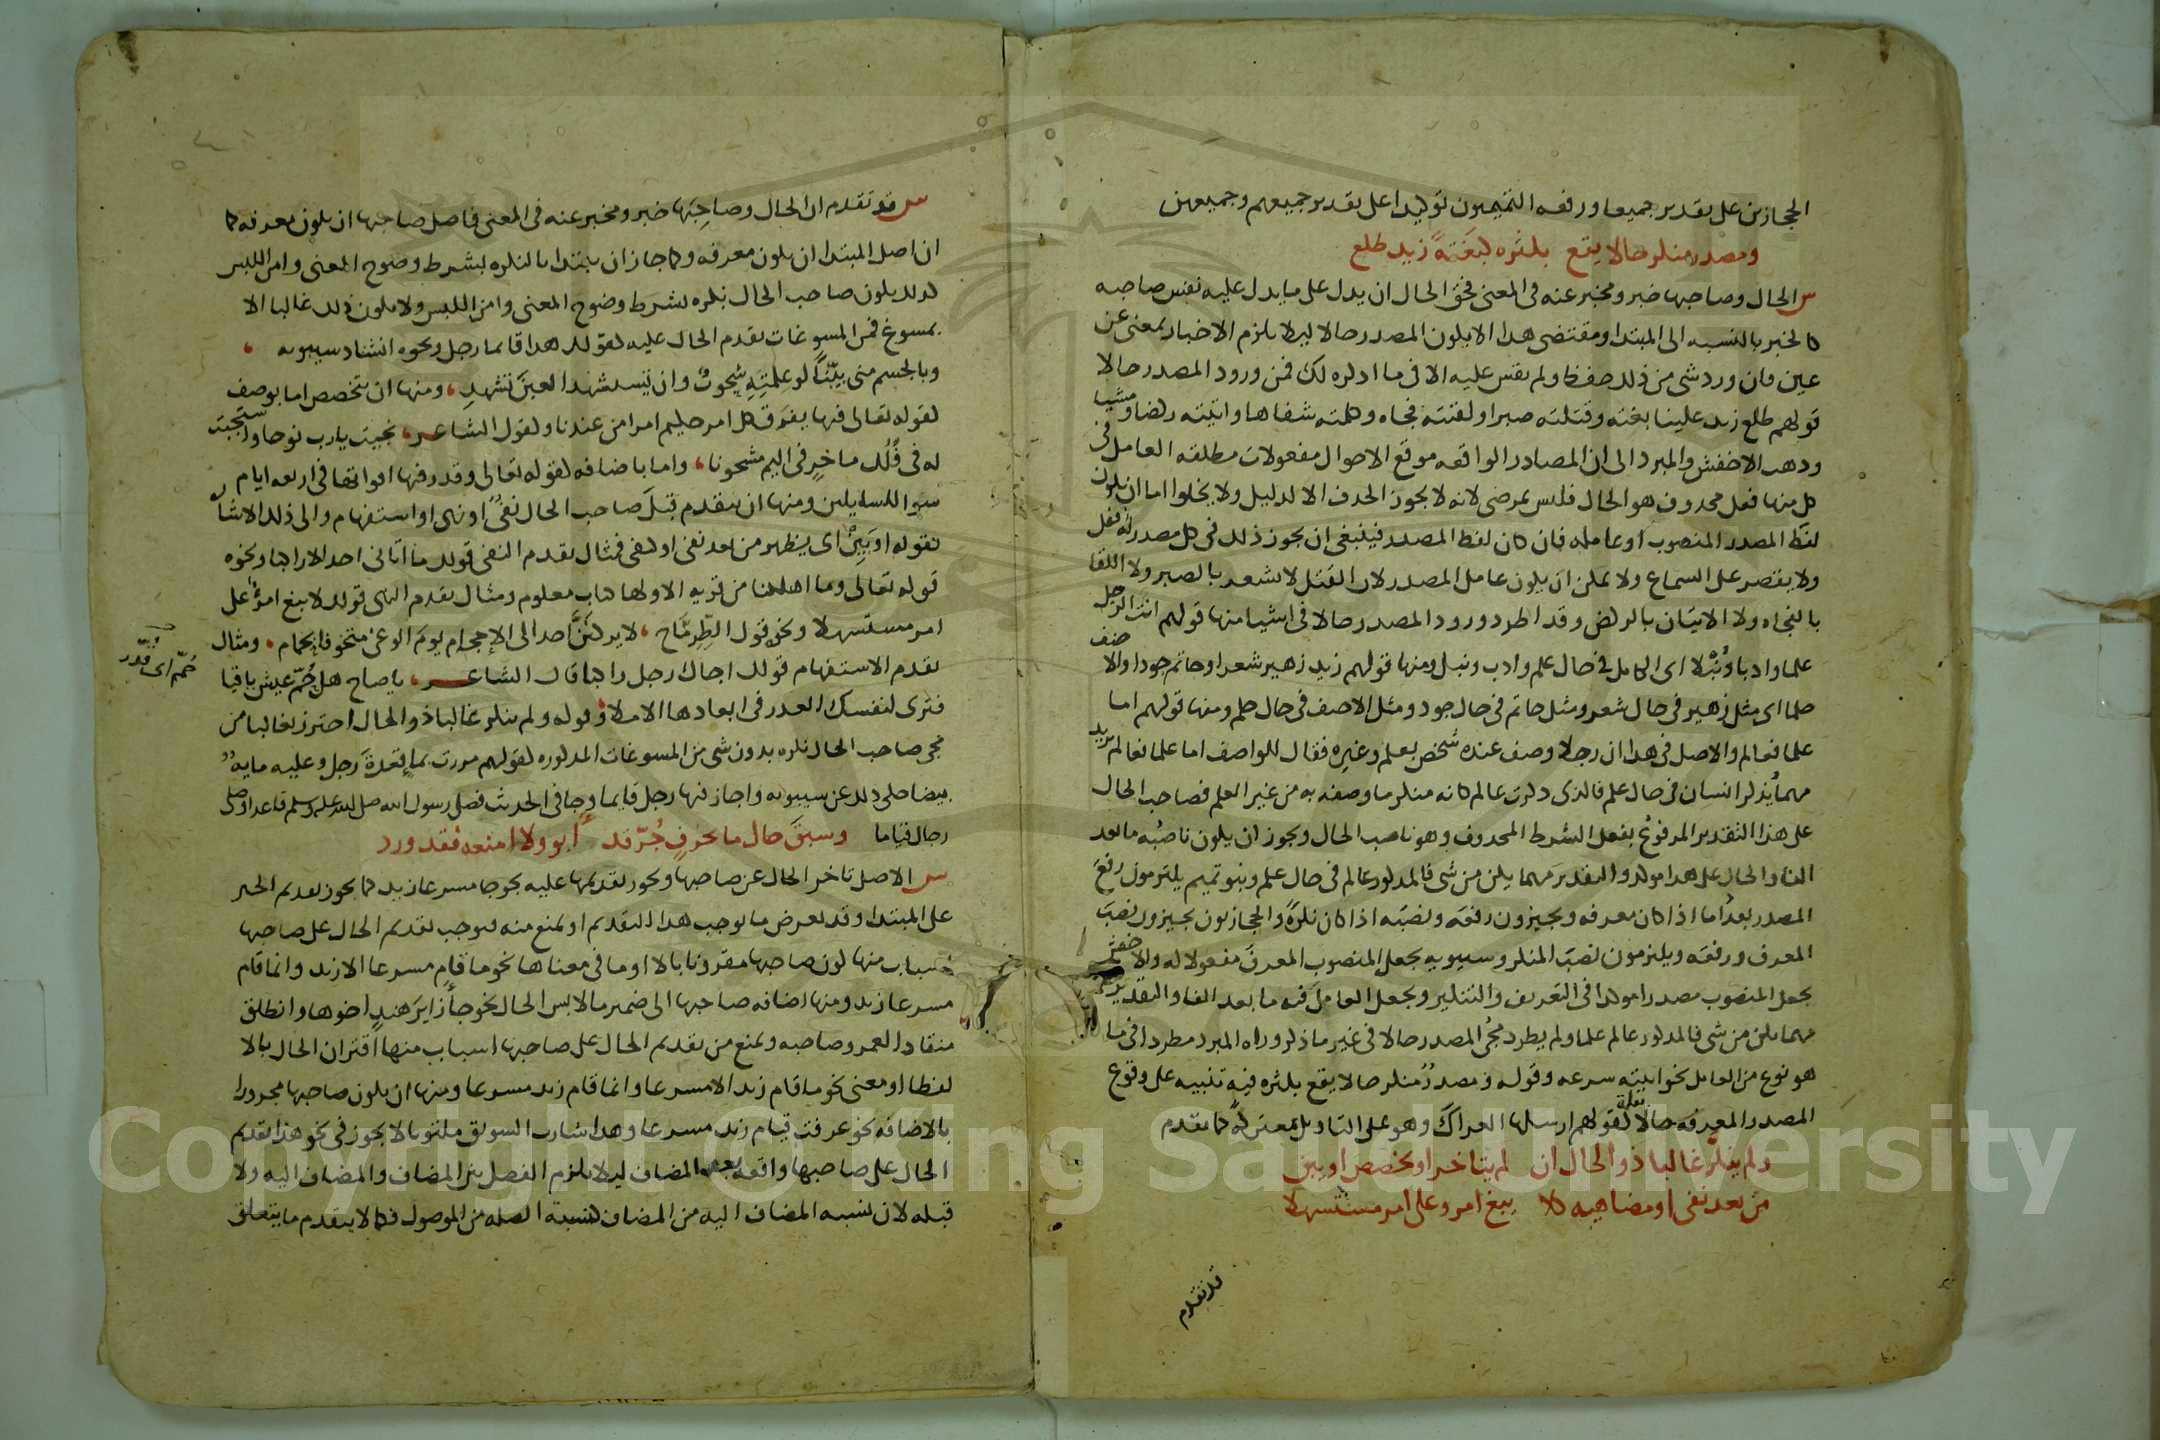 الحجازيين على تقدير جميعا ورفعه التميميون توكيدا على تقدير جميعهم وجميعهن
ومصدر منكر حالا يقع بكثرة كبغتةً زيد طلع
س الحال وصاحبها خبر ومخبر عنه في المعنى فحق الحال ان يدل على ما يدل عليه نفس صاحبه
كالخبر بالنسبه الى المبتدا ومقتضى هذا الا يكون المصدر حالا ليلا يلزم الاخبار بمعنى عن
عين فان ورد شي من ذلك حفظ ولم يقس عليه الا في ما اذكره لك فمن ورود المصدر حالا
قولهم طلع زيد علينا بغته وقتلته صبرا ولقيته فجاه وكلمته شفاها واتيته ركضا ومشيا
وذهب الاخفش والمبرد الى ان المصادر الواقعه موقع الاحوال مفعولات مطلقه العامل في
كل منها فعل محذوف هو الحال فليس بمرضي لانه لا يجوز الحذف الا لدليل ولا يخلوا اما ان يكون
لفظ المصدر المنصوب او عامله فان كان لفظ المصدر فينبغي ان يجوز ذلك في كل مصدر له فعل
ولا يقصر على السماع ولا يمكن ان يكون عامل المصدر لان القتل لا يشعر بالصبر ولا اللقا
بالفجاه ولا الاتيان بالركض وقد اطرد ورود المصدر حالا في اشيا منها قولهم انت الرجل
علما وادبا ونُبْلا اي الكامل في حال علم وادب ونبل ومنها قولهم زيد زهير شعرا وحاتم جودا والاحنف
حلما اي مثل زهير في حال شعر ومثل حاتم في حال جود ومثل الاحنف في حال حلم ومنها قولهم اما
علما فعالم والاصل في هذا ان رجلا وصف عنده شخص بعلم وغيره فقال للواصف اما علما فعالم يريد
مهما يُذكر انسان في حال علم فالذي ذكرت عالم كانه منكر ما وصفه به من غير العلم فصاحب الحال
على هذا التقدير المرفوع بفعل الشرط المحذوف وهو ناصب الحال ويجوز ان يكون ناصبه ما بعد
الفا والحال على هذا موكده والتقدير مهما يكن من شي فالمذكور عالم في حال علم وبنو تميم يلتزمون رفع
المصدر بعد اما اذا كان معرفه ويجيزون رفعه ونصبه اذا كان نكرةً والحجازيون يجيزون نصب
المعرف ورفعه ويلتزمون نصب المنكر وسيبويه يجعل المنصوب المعرف مفعولا له والاخفش
يجعل المنصوب مصدرا موكدا في التعريف والتنكير ويجعل العامل فيه ما بعد الفا والتقدير
مهما يكن من شي فالمذكور عالم علما ولم يطرد مجي المصدر حالا في غير ما ذكر وراه المبرد مطردا في ما
هو نوع من العامل نحو اتيته سرعه وقوله ومصدرٌ منكر حالا يقع بكثره فيه تنبيه على وقوع
المصدر المعرفه حالا بقله كقولهم ارسلها العراك وهو على التاويل بمعتركةً كما تقدم
ولم ينكر غالبا ذو الحال ان لم يتاخر او يخصص او يبن
من بعد نفي او مضاهيه كلا يبغ امرو على امر مستسهلا
قد تقدم
س قد تقدم ان الحال وصاحبَها خبر ومخبر عنه في المعنى فاصل صاحبها ان يكون معرفه كما
ان اصل المبتدا ان يكون معرفه وكما جاز ان يبتدا بالنكره بشرط وضوح المعنى وامن اللبس
كذلك يكون صاحب الحال نكره بشرط وضوح المعنى وامن اللبس ولا يكون ذلك غالبا الا
بمسوغ فمن المسوغات تقدم الحال عليه كقولك هذا قايما رجل ونحوه انشاد سيبويه
وبالجسم مني بيّناً لو علمتِهِ شحوبٌ وان تستشهد العينَ تشهدِ ومنها ان يتخصص اما بوصف
كقوله تعالى فيها يفرق كل امر حكيم امرا من عندنا وكقول الشاعر نجيت يارب نوحا واستجبت
له في فُلُك ماخرٍ في اليم مشحونا واما باضافه كقوله تعالى وقدر فيها اقواتها في اربعه ايام
سوا للسايلين ومنها ان يتقدم قبل صاحب الحال نفيٌ او نهي او استفهام والى ذلك الاشاره
بقوله او يَبِنْ اي يظهر من بعد نفي او كنفي فمثال تقدم النفي قولك ما اتاني احد الا راكبا ونحوه
قوله تعالى وما اهلكنا من قريه الا ولها كتاب معلوم ومثال تقدم النهي قولك لا يبغ امرؤٌ على
امر مستسهلا ونحو قول الطِّرِمَّاح لا يركنَنَّ احد الى الإحجام يوم الوغى متخوفا لحمام ومثال
تقدم الاستفهام قولك اجاك رجل راكبا قال الشاعر يا صاح هل حُمّ عيش باقيا
حُمّ اي قُدّر
فترى لنفسك العذر في ابعادها الاملا وقوله ولم ينكر غالبا ذو الحال احترز بغالبا من
مجي صاحب الحال نكره بدون شي من المسوغات المذكوره كقولهم مررت بماءٍ قعدةَ رجل وعليه مايةٌ
بيضا حكى ذلك عن سيبويه واجاز فيها رجل قايما وجا في الحديث فصلى رسول الله صلى الله عليه وسلم قاعدا وصلى
رجال قياما وسبقَ حال ما بحرفٍ جُرّ قد أبوا ولا امنعه فقد ورد
س الاصل تاخر الحال عن صاحبها ويجوز تقديمها عليه نحو جا مسرعا زيد كما يجوز تقديم الخبر
على المبتدا وقد يعرض ما يوجب هذا التقديم او يمنع منه فيوجب تقديم الحال على صاحبها
اسباب منها كون صاحبها مقرونا بالا او ما في معناها نحو ما قام مسرعا الا زيد وانما قام
مسرعا زيد ومنها اضافه صاحبها الى ضمير ما لابس الحال نحو جأ زايرَ هندٍ اخوها وانطلق
منقادا لعمرو صاحبه ويمنع من تقديم الحال على صاحبها اسباب منها اقتران الحال بالا
لفظا او معنى نحو ما قام زيد الا مسرعا وانما قام زيد مسرعا ومنها ان يكون صاحبها مجرورا
بالاضافه نحو عرفت قيام زيد مسرعا وهذا شارب السويق ملتوتا لا يجوز في نحو هذا تقديم
الحال على صاحبها واقعه بعد المضاف ليلا يلزم الفصل بين المضاف والمضاف اليه ولا
قبله لان نسبه المضاف اليه من المضاف كنسبة الصله من الموصول فكما لا يتقدم ما يتعلق
Copyright © King Saud University